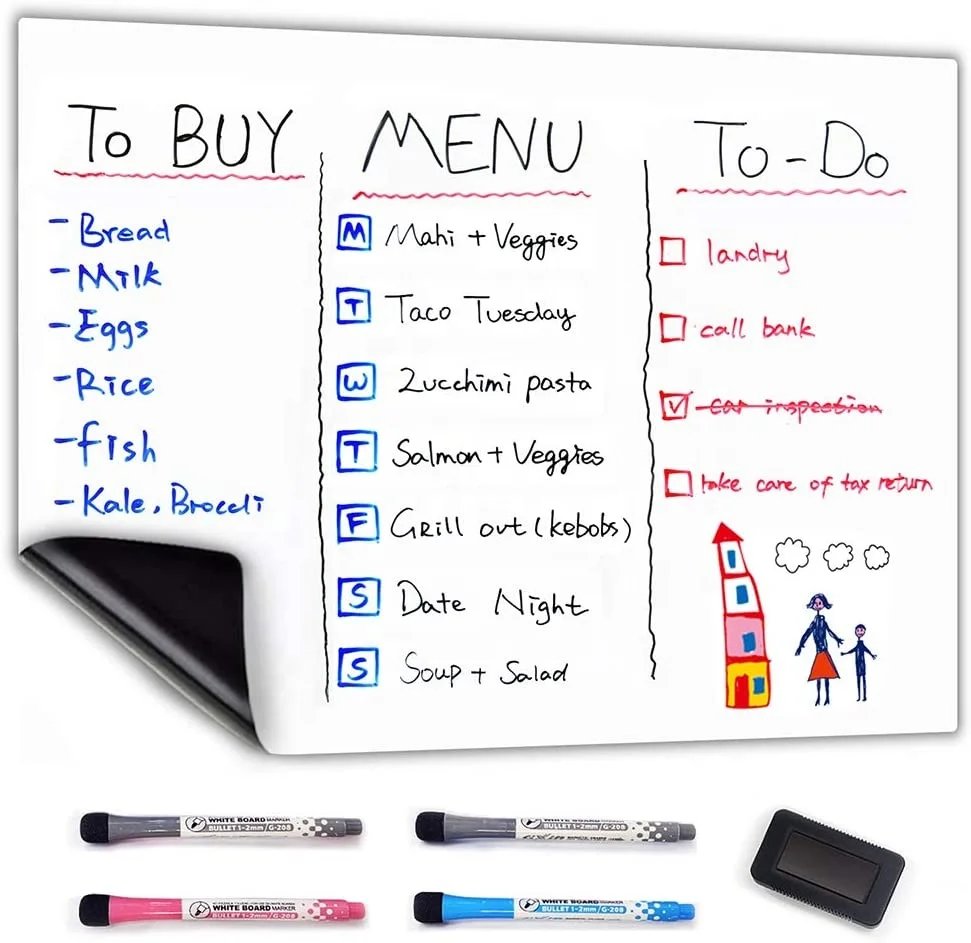 To BUY
- Bread
- Milk
- Eggs
- Rice
- fish
- Kale, Broccli
MENU
M Mahi + Veggies
T Taco Tuesday
W Zucchimi pasta
T Salmon + Veggies
F Grill out (kebobs)
S Date Night
S Soup + Salad
To-Do
landry
call bank
car inspection
take care of tax return
WHITE BOARD MARKER
BULLET 1-2mm/G-208
WHITE BOARD MARKER
BULLET 1-2mm/G-208
WHITE BOARD MARKER
BULLET 1-2mm/G-208
WHITE BOARD MARKER
BULLET 1-2mm/G-208